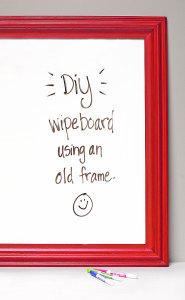 Diy
wipeboard
using an
old frame.